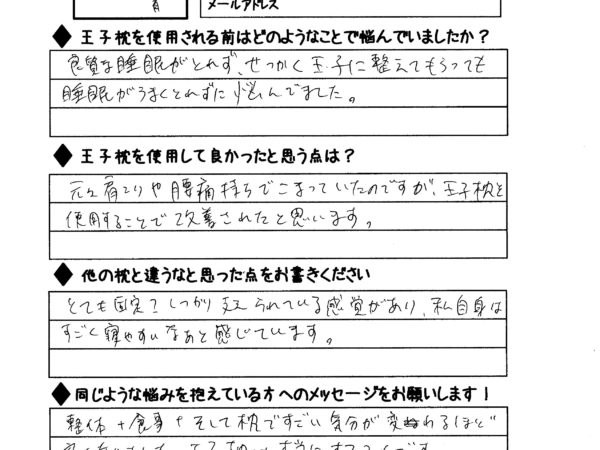 有
メールアドレス
◆王子枕を使用される前はどのようなことで悩んでいましたか？
良質な睡眠がとれず、せっかく王子に整えてもらっても
睡眠がうまくとれずに悩んでました。
◆王子枕を使用して良かったと思う点は？
元々肩こりや腰痛持ちでこまっていたのですが、王子枕を
使用することで改善されたと思います。
◆他の枕と違うなと思った点をお書きください
とても固定？しっかり支えられている感覚があり、私自身は
すごく寝やすいなあと感じています。
◆同じような悩みを抱えている方へのメッセージをお願いします！
整体＋食事＋そして枕ですごい気分が変われるほど